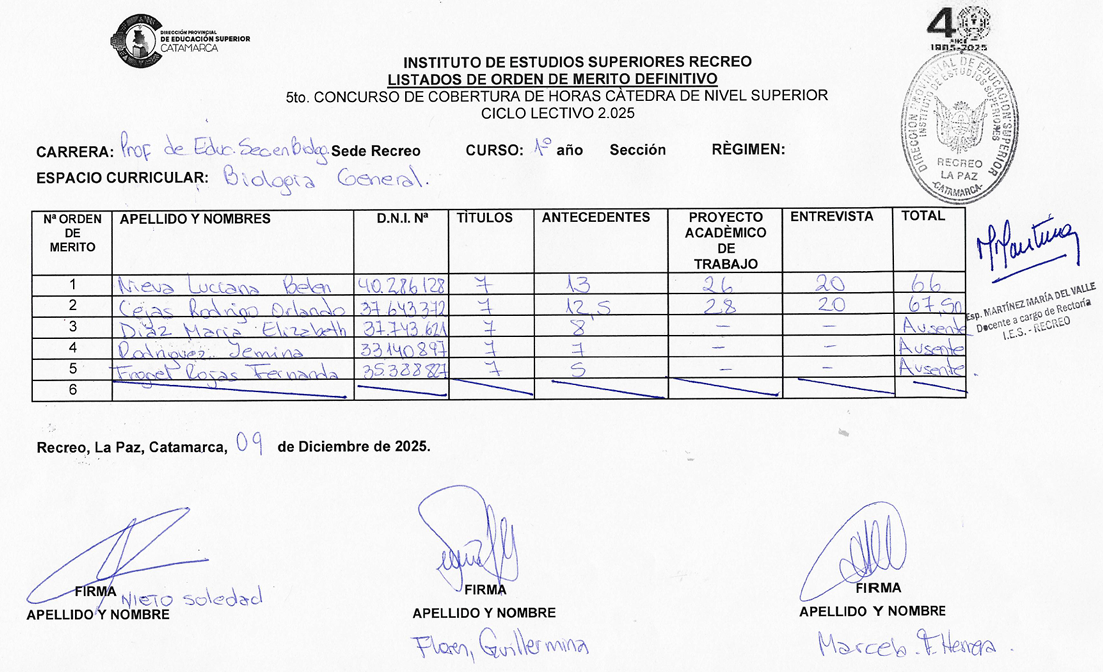 DIRECCIÓN PROVINCIAL
DE EDUCACIÓN SUPERIOR
CATAMARCA
40
AÑOS
1985-2025
INSTITUTO DE ESTUDIOS SUPERIORES RECREO
LISTADOS DE ORDEN DE MERITO DEFINITIVO
5to. CONCURSO DE COBERTURA DE HORAS CÀTEDRA DE NIVEL SUPERIOR
CICLO LECTIVO 2.025
DIRECCIÓN PROVINCIAL DE EDUCACIÓN SUPERIOR
INSTITUTO DE ESTUDIOS SUPERIORES
RECREO
LA PAZ
-CATAMARCA-
CARRERA: Prof de Educ. Sec en Biolog. Sede Recreo CURSO: 1º año Sección RÈGIMEN:
ESPACIO CURRICULAR: Biología General.
Nª ORDEN DE MERITO APELLIDO Y NOMBRES D.N.I. Nª TÌTULOS ANTECEDENTES PROYECTO ACADÈMICO DE TRABAJO ENTREVISTA TOTAL
1 Nieva Luciana Belen 40.286.128 7 13 26 20 66
2 Cejas Rodrigo Orlando 37.643.372 7 12,5 28 20 67,50
3 Díaz Maria Elizabeth 37.743.621 7 8 – – Ausente
4 Rodriguez Jemina 33140897 7 7 – – Ausente
5 Rojas Fernanda 7 5 – – Ausente.
6
Esp. MARTÍNEZ MARÍA DEL VALLE
Docente a cargo de Rectoría
I.E.S. - RECREO
Recreo, La Paz, Catamarca, 09 de Diciembre de 2025.
FIRMA
NIETO Soledad
APELLIDO Y NOMBRE
FIRMA
APELLIDO Y NOMBRE
Guillermina
FIRMA
APELLIDO Y NOMBRE
Marcelo F. Herrera.